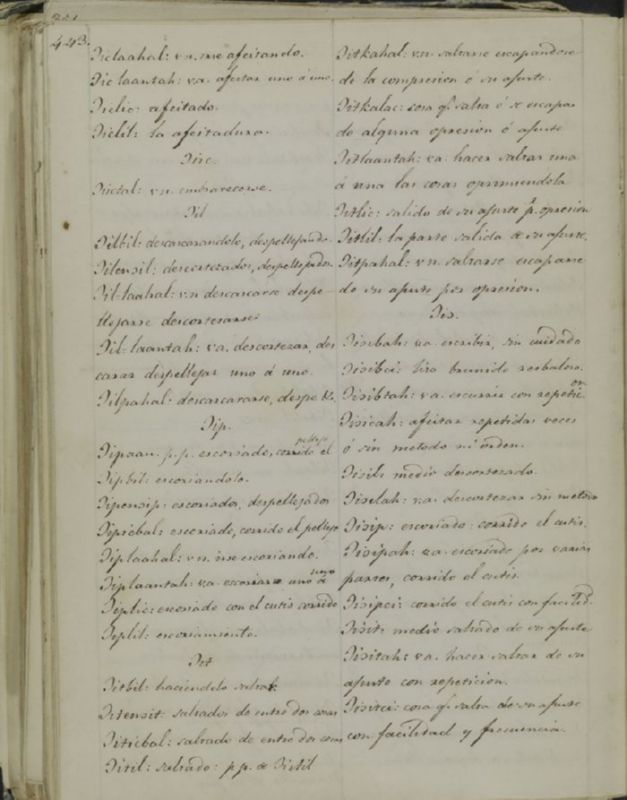 443.
Jiclaahal: v.n. irse afeitando.
Jiclaantah: v.a. afeitar uno á uno.
Jiclic: afeitado.
Jiclil: la afeitadura.
Jiic.
Jiictal: v.n. embravecerse.
Jil
Jilbil: descascarandolo, despellejando
Jilensil: descortezados, despellejados
Jil-laahal: v.n descascarse despe-
llejarse descortezarse.
Jil-laantah: v.a. descortezar, des
carar despellejar uno á uno.
Jilpahal: descascararse, despe &c.
Jip.
Jipaan. p.p. escoriado, corrido el pellejo
Jipbil: escoriandolo.
Jipensip: escoriados, despellejados
Jipicbal: escoriado, corrido el pellejo
Jiplaahal: v.n. irse escoriando.
Jiplaantah: v.a. escoriar uno á uno
Jiplic: escoriado con el cutis corrido
Jiplil: escoriamiento.
Jit
Jitbil: haciendolo saltar.
Jitensit: saltados de entre dos cosas
Jiticbal: saltado de entre dos cosas
Jitil: saltado: p.p. de Jictil
Jitkahal: v.n. saltarse escapandose
de la compresion ó su ajuste.
Jitkalac: cosa q.e salta ó se escapa
de alguna opresion ó ajuste
Jitlaantah: v.a. hacer saltar una
á una las cosas oprimiendola
Jitlic: salido de su ajuste p.r opresion
Jitlil: la parte salida de su ajuste.
Jitpahal: v.n. saltarse escaparse
de su ajuste por opresion.
Jis.
Jisibah: v.a. escribir, sin cuidado
Jisibci: liso brunido resbaloso.
Jisibtah: v.a. escurrir con repeticion
Jisicah: afeitar repetidas veces
ó sin metodo ni orden.
Jisil: medio descortezado.
Jisilah: v.a. descortezar sin metodo
Jisip: escoriado: corrido el cutis.
Jisipah: v.a. escoriado por varias
partes, corrido el cutis.
Jisipci: corrido el cutis con facilid.d
Jisit: medio saltado de su ajuste
Jisitah: v.a. hacer saltar de su
ajuste con repeticion.
Jisitci: cosa q.e salta de su ajuste
con facilidad y frecuencia.